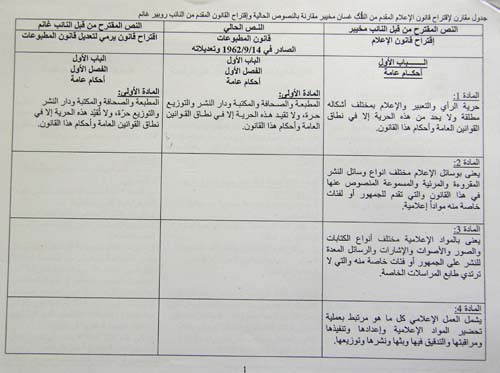 جدول مقارن لإقتراح قانون الإعلام المقدم من النائب غسان مخيبر مقارنة بالنصوص الحالية وإقتراح القانون المقدم من النائب روبير غانم
النص المقترح من قبل النائب مخيبر
إقتراح قانون الإعلام
النص الحالي
قانون المطبوعات
الصادر في 1962/9/14 وتعديلاته
النص المقترح من قبل النائب غانم
اقتراح قانون يرمي لتعديل قانون المطبوعات
الباب الأول
أحكام عامة
المادة 1:
حرية الرأي والتعبير والإعلام بمختلف أشكاله
مطلقة ولا يحد من هذه الحرية إلا في نطاق
القوانين العامة وأحكام هذا القانون.
الباب الأول
الفصل الأول
أحكام عامة
المادة الأولى:
المطبعة والصحافة والمكتبة ودار النشر والتوزيع
حرة، ولا تقيد هذه الحرية إلا في نطاق القوانين
العامة وأحكام هذا القانون.
الباب الأول
الفصل الأول
أحكام عامة
المادة الأولى:
المطبعة والصحافة والمكتبة ودار النشر
والتوزيع حرّة، ولا تُقيّد هذه الحرية إلا في
نطاق القوانين العامة وأحكام هذا القانون.
المادة 2:
يعنى بوسائل الإعلام مختلف انواع وسائل النشر
المقروءة والمرئية والمسموعة المنصوص عنها
في هذا القانون والتي تقدم للجمهور أو لفئات
خاصة منه مواداً إعلامية.
المادة 3:
يعنى بالمواد الإعلامية مختلف أنواع الكتابات
والصور والأصوات والإشارات والرسائل المعدة
للنشر على الجمهور أو فئات خاصة منه والتي لا
ترتدي طابع المراسلات الخاصة.
المادة 4:
يشمل العمل الإعلامي كل ما هو مرتبط بعملية
تحضير المواد الإعلامية وإعدادها وتنفيذها
ومراقبتها والتدقيق فيها وبثها ونشرها وتوزيعها.
1